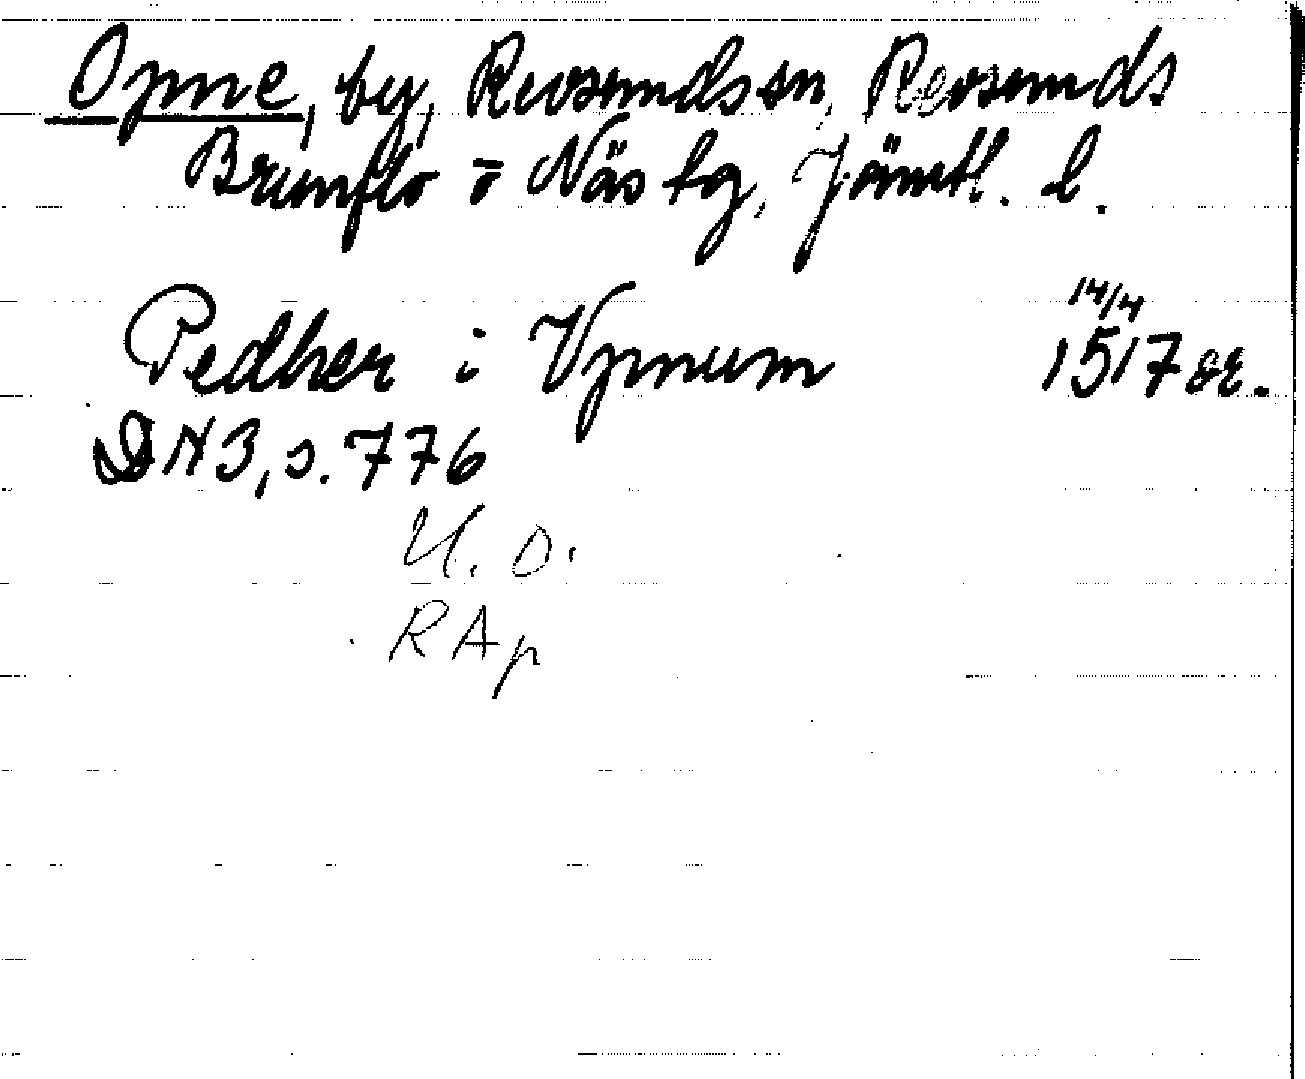 Opne, by, Revsunds sn, Revsunds
Brunflo o Näs tg, Jämtl. l.
Pedher i Vpnum 14/4 1517 or.
DN 3, s. 776
U. D.
RAp